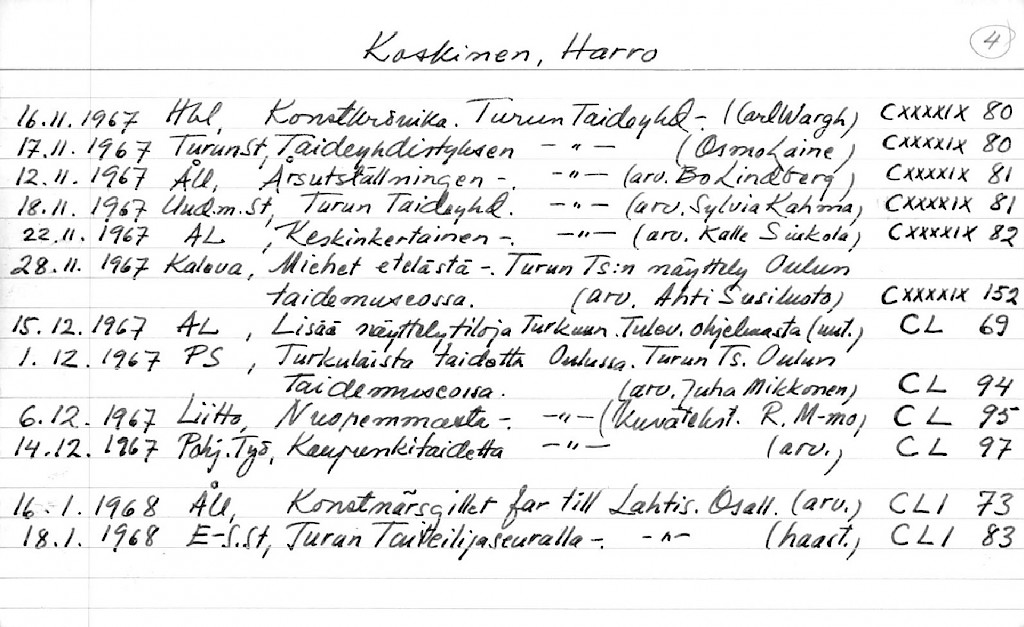 Koskinen, Harro 4
16.11.1967 Hbl, Konstkrönika. Turun Taideyhd - (Carl Wargh) CXXXXIX 80
17.11.1967 TurunSt, Taideyhdistyksen -"- (Osmo Laine) CXXXXIX 80
12.11.1967 ÅU, Årsutställningen -. -"- (arv. Bo Lindberg) CXXXXIX 81
18.11.1967 Uud.m.St, Turun Taideyhd. -"- (arv. Sylvia Kahma) CXXXXIX 81
22.11.1967 AL, Keskinkertainen -. -"- (arv. Kalle Siukola) CXXXXIX 82
28.11.1967 Kaleva, Miehet etelästä -. Turun Ts:n näyttely Oulun
taidemuseossa. (arv. Ahti Susiluoto) CXXXXIX 152
15.12.1967 AL, Lisää näyttelytiloja Turkuun. Tulev. ohjelmasta (uut.) CL 69
1.12.1967 PS, Turkulaista taidetta Oulussa. Turun Ts. Oulun
Taidemuseossa. (arv. Juha Mikkonen) CL 94
6.12.1967 Liitto, Nuoremmasta -. -"- (Kuvatekst. R. M-mo) CL 95
14.12.1967 Pohj.Työ, Kaupunkitaidetta -"- (arv.) CL 97
16.1.1968 ÅU, Konstnärsgillet far till Lahtis. Osall. (arv.) CLI 73
18.1.1968 E-S.St, Turun Taiteilijaseuralla -. -"- (haast.) CLI 83